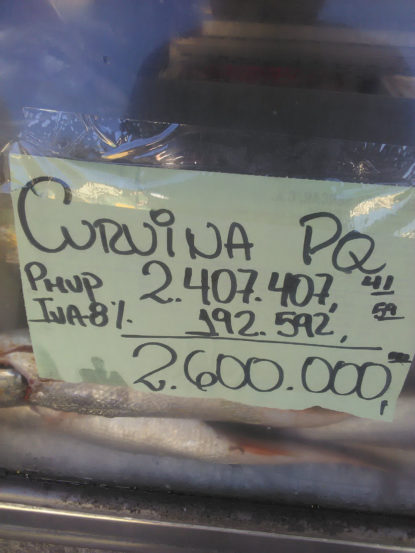 CURVINA PQ
PMVP 2.407.407,41
IVA-8%. 192.592,59
2.600.000,